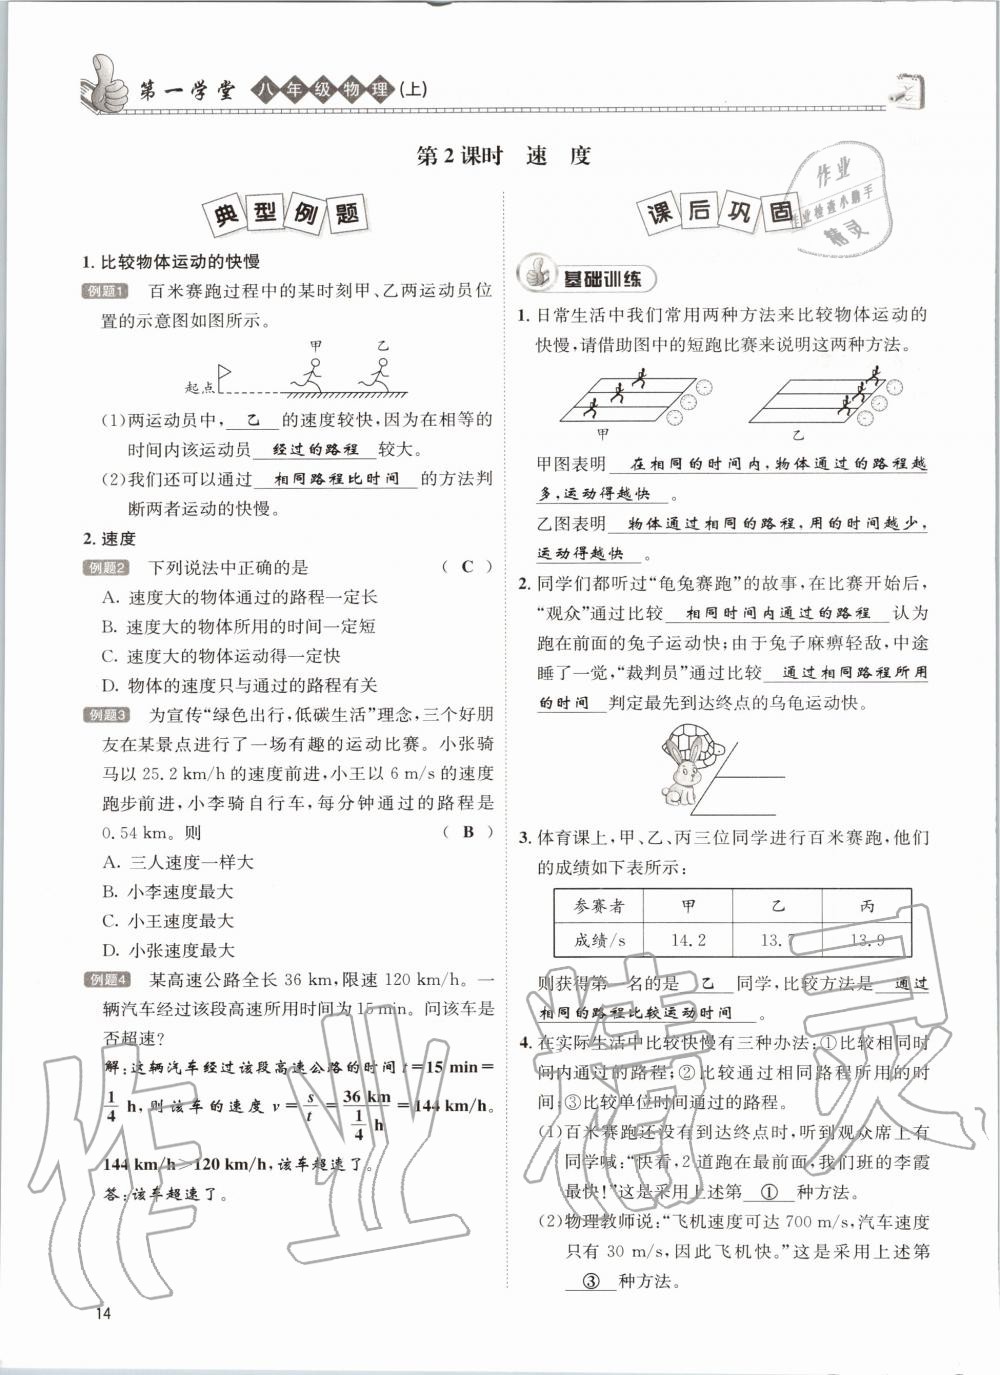 第一学堂 八年级物理(上)
第2课时 速 度
典型例题
1. 比较物体运动的快慢
例题1 百米赛跑过程中的某时刻甲、乙两运动员位
置的示意图如图所示。
甲 乙
起点
(1)两运动员中, 乙 的速度较快,因为在相等的
时间内该运动员 经过的路程 较大。
(2)我们还可以通过 相同路程比时间 的方法判
断两者运动的快慢。
2. 速度
例题2 下列说法中正确的是 ( C )
A. 速度大的物体通过的路程一定长
B. 速度大的物体所用的时间一定短
C. 速度大的物体运动得一定快
D. 物体的速度只与通过的路程有关
例题3 为宣传“绿色出行,低碳生活”理念,三个好朋
友在某景点进行了一场有趣的运动比赛。小张骑
马以 25.2 km/h 的速度前进,小王以 6 m/s 的速度
跑步前进,小李骑自行车,每分钟通过的路程是
0.54 km。则 ( B )
A. 三人速度一样大
B. 小李速度最大
C. 小王速度最大
D. 小张速度最大
例题4 某高速公路全长 36 km,限速 120 km/h。一
辆汽车经过该段高速所用时间为 15 min。问该车是
否超速?
解:这辆汽车经过该段高速公路的时间 t=15 min=
1/4 h,则该车的速度 v=s/t=36 km/(1/4 h)=144 km/h。
144 km/h>120 km/h,该车超速了。
答:该车超速了。
14
课后巩固
作业
作业检查小助手
精灵
基础训练
1. 日常生活中我们常用两种方法来比较物体运动的
快慢,请借助图中的短跑比赛来说明这两种方法。
甲 乙
甲图表明 在相同的时间内,物体通过的路程越
多,运动得越快 。
乙图表明 物体通过相同的路程,用的时间越少,
运动得越快 。
2. 同学们都听过“龟兔赛跑”的故事,在比赛开始后,
“观众”通过比较 相同时间内通过的路程 认为
跑在前面的兔子运动快;由于兔子麻痹轻敌,中途
睡了一觉,“裁判员”通过比较 通过相同路程所用
的时间 判定最先到达终点的乌龟运动快。
3. 体育课上,甲、乙、丙三位同学进行百米赛跑,他们
的成绩如下表所示:
参赛者 甲 乙 丙
成绩/s 14.2 13.7 13.9
则获得第一名的是 乙 同学,比较方法是 通过
相同的路程比较运动时间 。
4. 在实际生活中比较快慢有三种办法:①比较相同时
间内通过的路程;②比较通过相同路程所用的时
间;③比较单位时间通过的路程。
(1)百米赛跑还没有到达终点时,听到观众席上有
同学喊:“快看,2道跑在最前面,我们班的李霞
最快!”这是采用上述第 ① 种方法。
(2)物理教师说:“飞机速度可达 700 m/s,汽车速度
只有 30 m/s,因此飞机快。”这是采用上述第
③ 种方法。
作业精灵